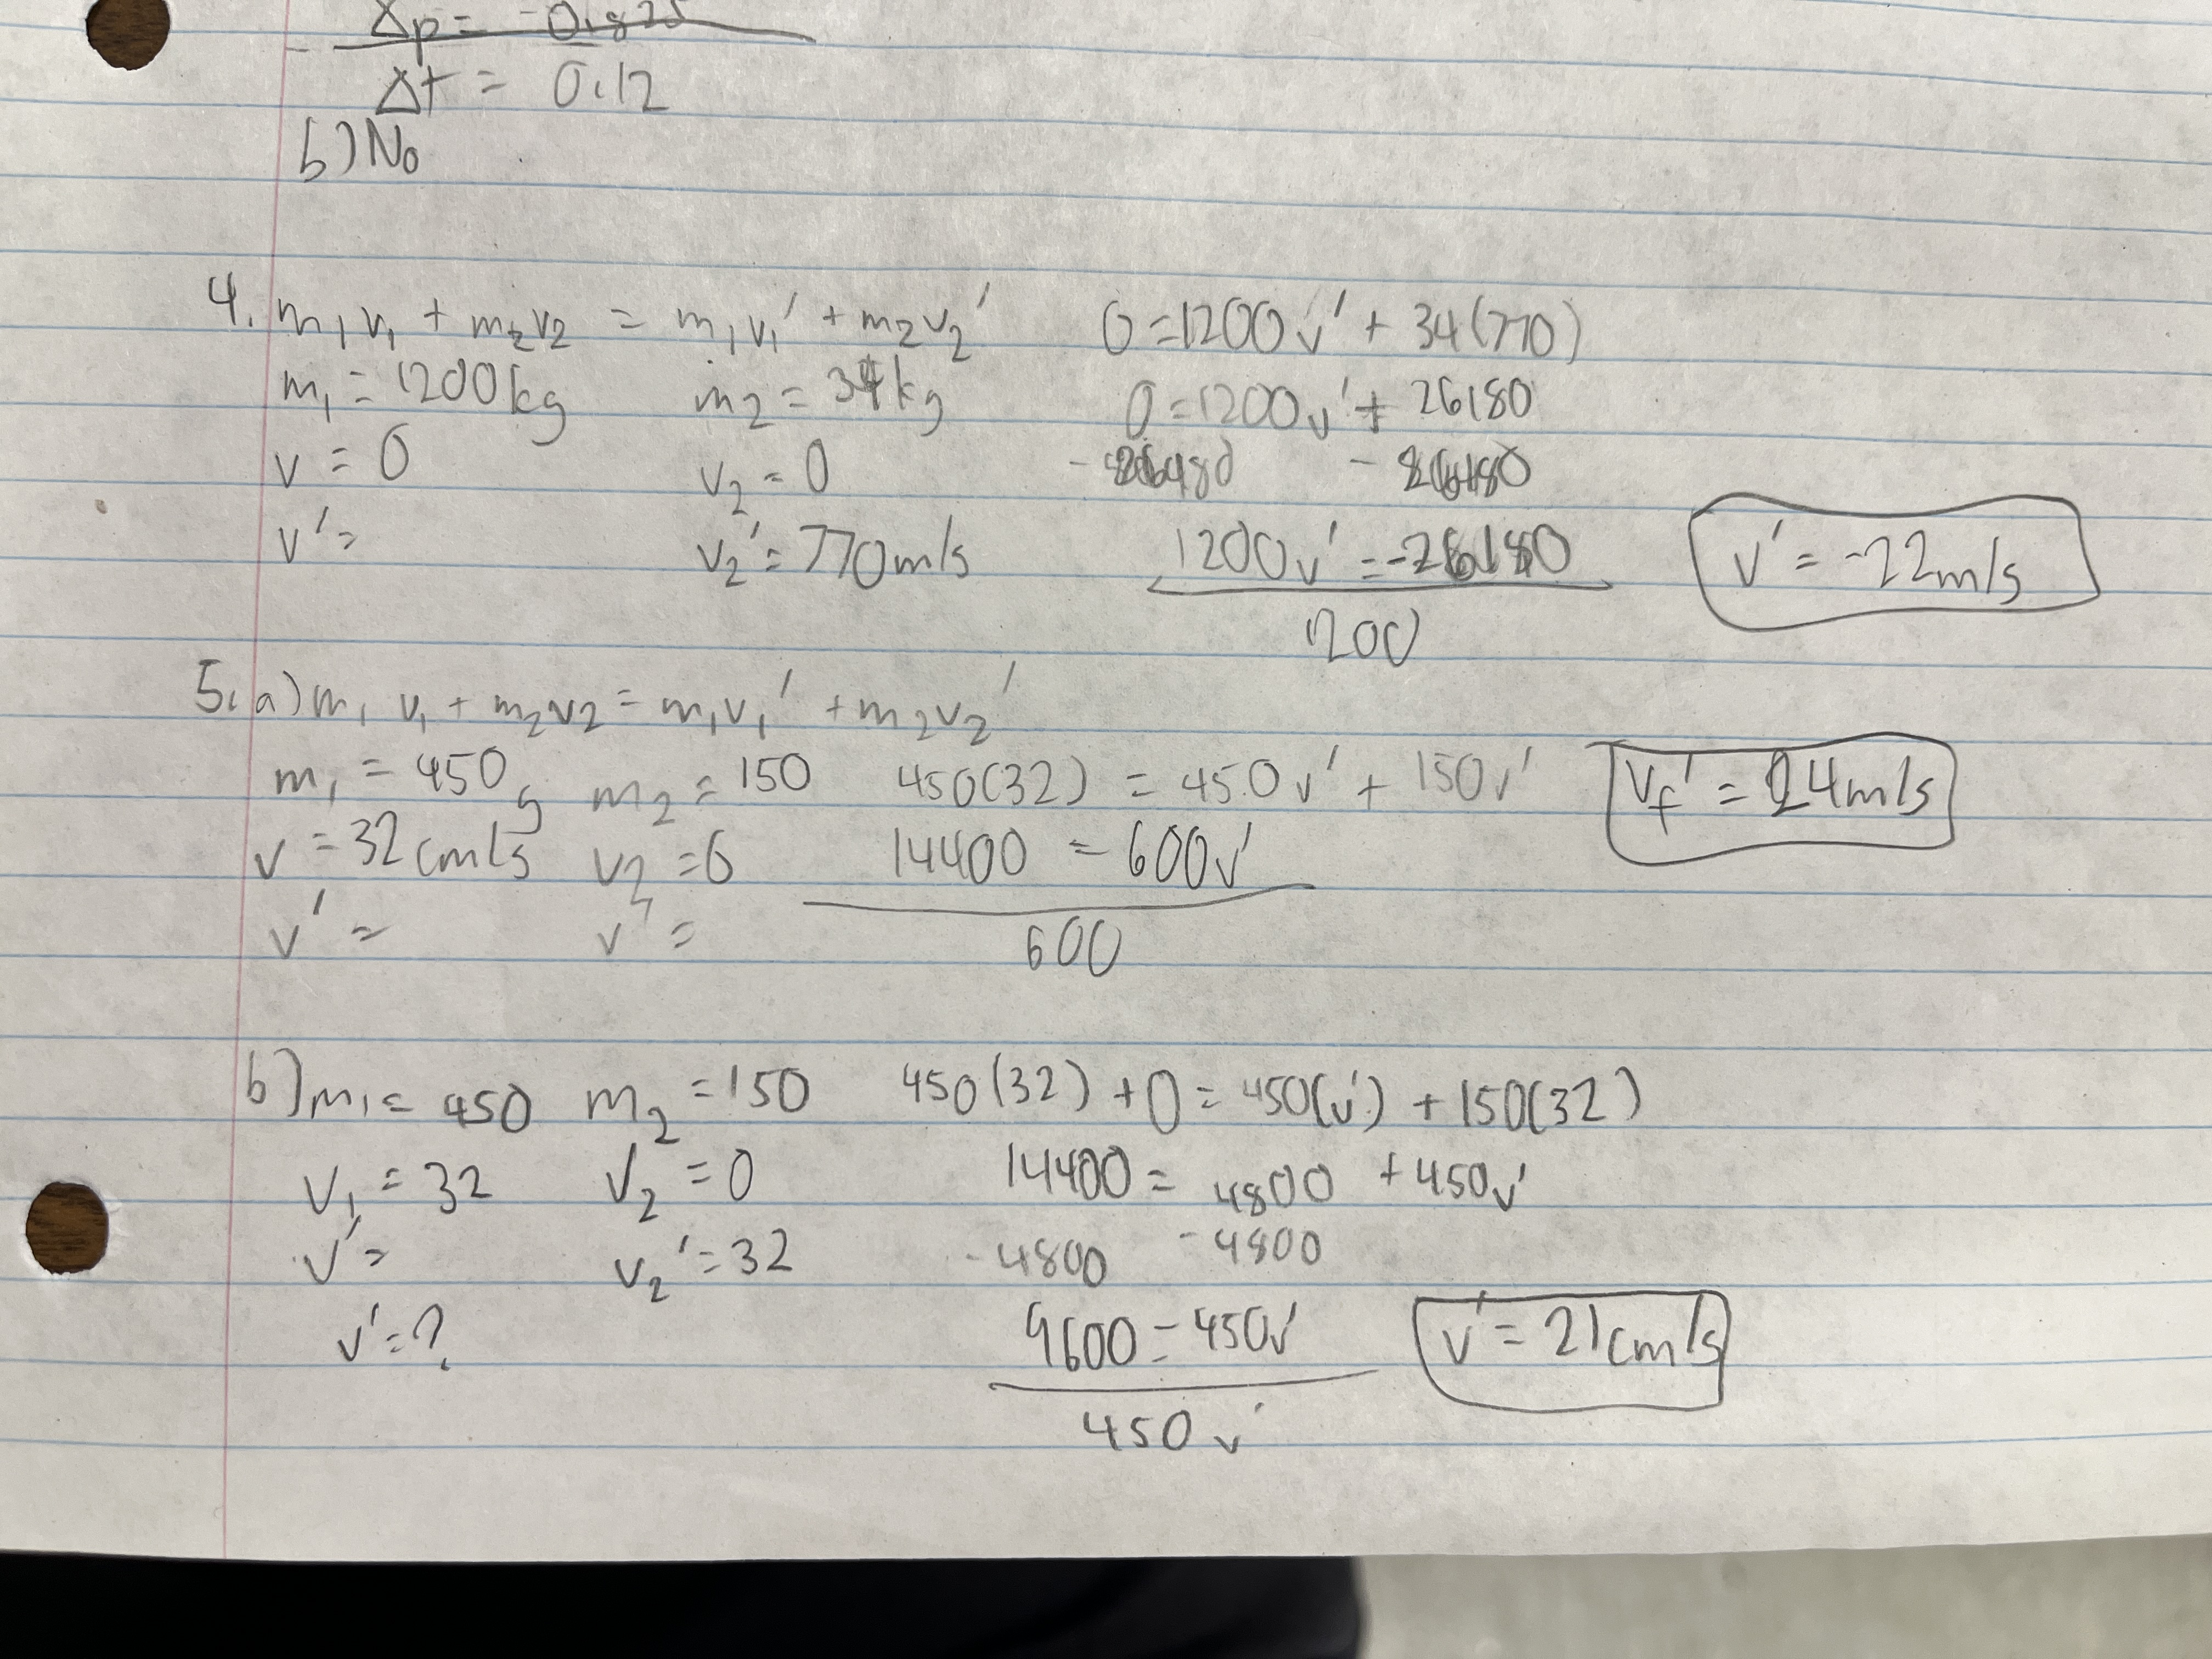 Δp = -0.825
Δt = 0.12
b) No
4. m₁v₁ + m₂v₂ = m₁v₁' + m₂v₂'
m₁ = 1200kg m₂ = 34kg
v = 0 v₂ = 0
v' = v₂' = 770m/s
0 = 1200v' + 34(770)
0 = 1200v' + 26180
-26180 -26180
1200v' = -26180
1200
v' = -22m/s
5. a) m₁v₁ + m₂v₂ = m₁v₁' + m₂v₂'
m₁ = 450g m₂ = 150
v = 32cm/s v₂ = 0
v' = v' =
450(32) = 450v' + 150v'
14400 = 600v'
600
vf' = 24m/s
b) m₁ = 450 m₂ = 150
v₁ = 32 v₂ = 0
v' = v₂' = 32
v' = ?
450(32) + 0 = 450(v') + 150(32)
14400 = 4800 + 450v'
-4800 -4800
9600 = 450v'
450v'
v' = 21cm/s